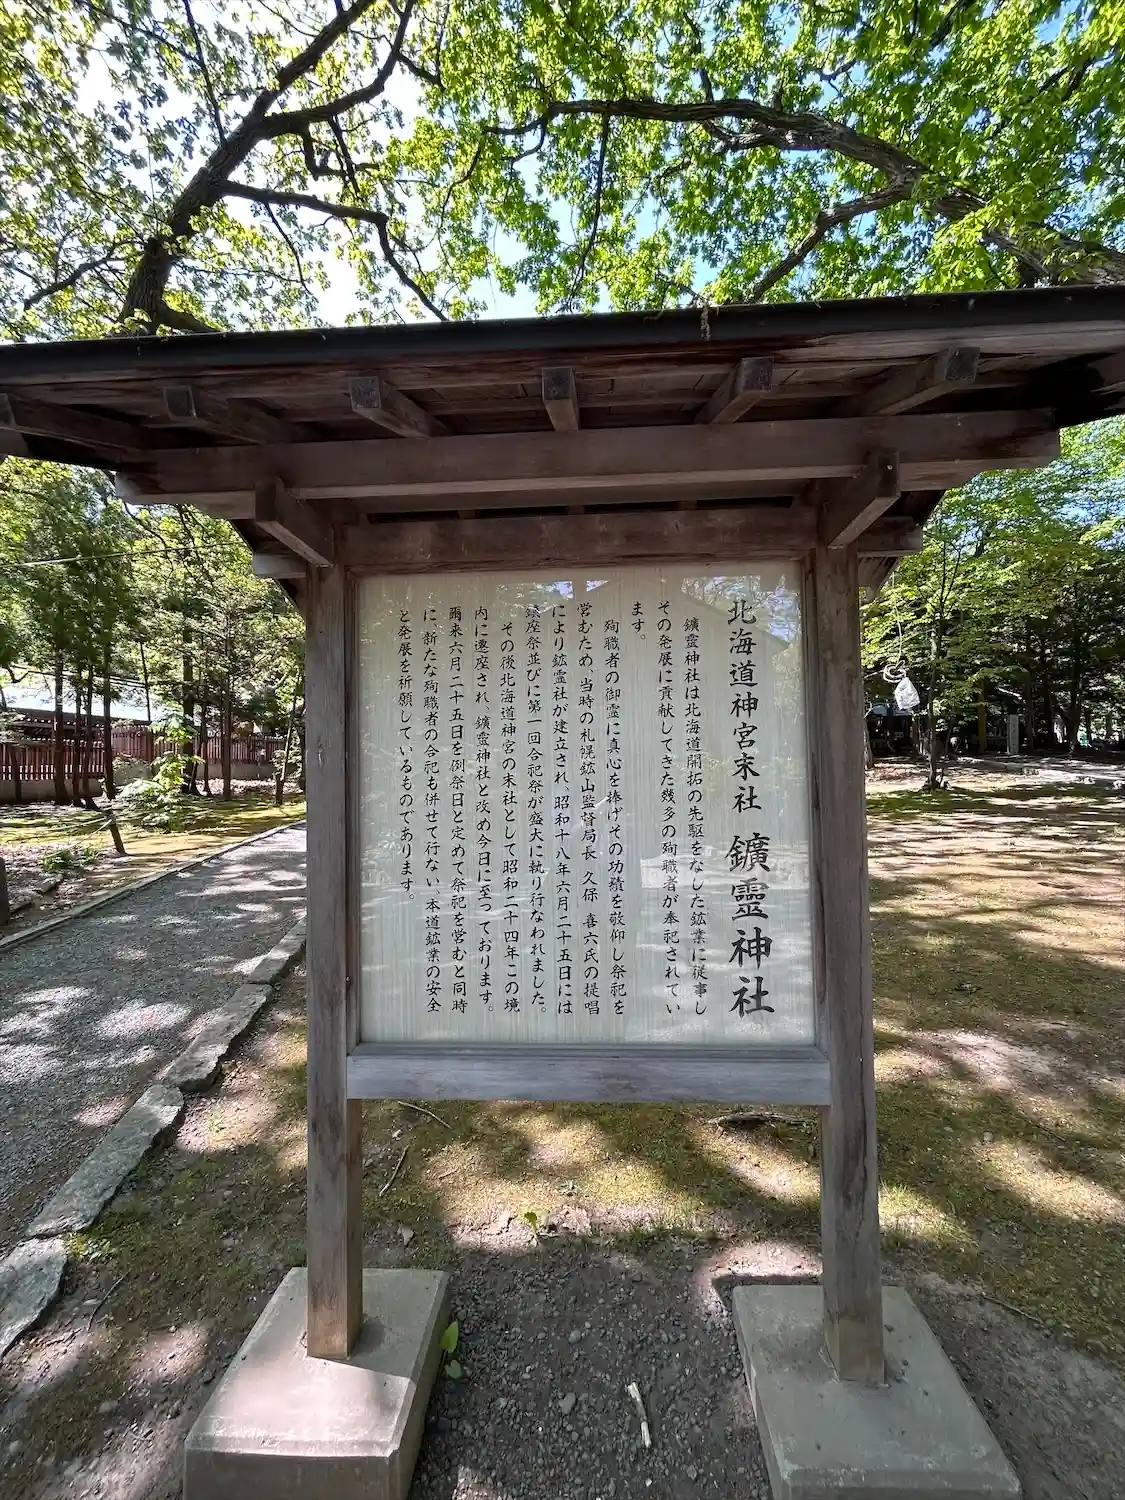 北海道神宮末社 鑛霊神社
鑛霊神社は北海道開拓の先駆をなした鉱業に従事し
その発展に貢献してきた幾多の殉職者が奉祀されてい
ます。
殉職者の御霊に真心を捧げその功績を敬仰し祭祀を
営むため、当時の札幌鉱山監督局長 久保 喜六氏の提唱
により鉱霊社が建立され、昭和十八年六月二十五日には
鎮座祭並びに第一回合祀祭が盛大に執り行なわれました。
その後北海道神宮の末社として昭和二十四年この境
内に遷座され、鑛霊神社と改め今日に至っております。
爾来六月二十五日を例祭日と定めて祭祀を営むと同時
に、新たな殉職者の合祀も併せて行ない、本道鉱業の安全
と発展を祈願しているものであります。